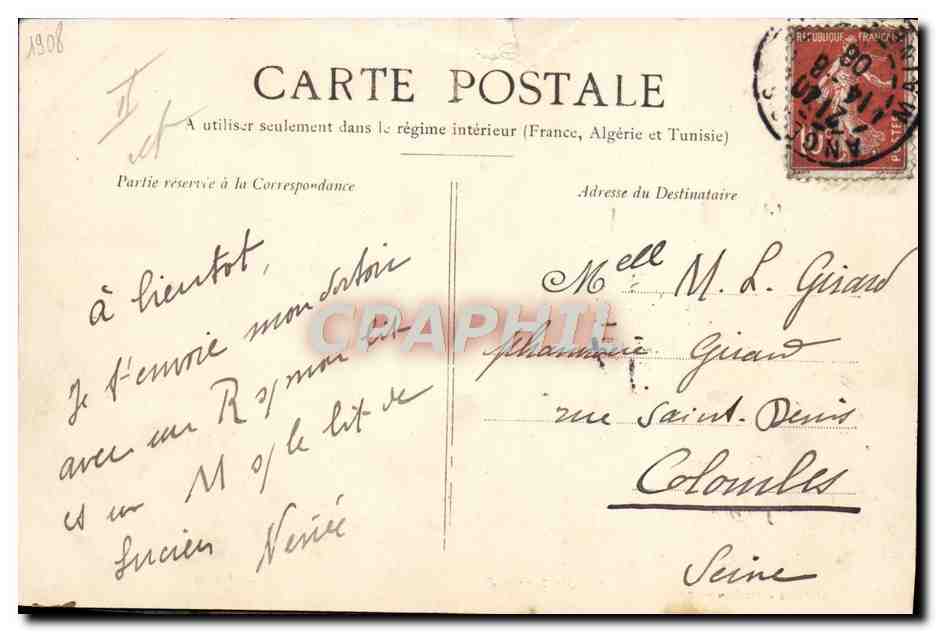 1908
II
CARTE POSTALE
A utiliser seulement dans le régime intérieur (France, Algérie et Tunisie)
Partie réservée à la Correspondance
Adresse du Destinataire
REPUBLIQUE FRANÇAISE
POSTES
10
à bientot,
Je t'envoie mon dortoir
avec un R s/ mon lit
et un M s/ le lit de
Lucien
Melle M. L. Girard
pharmacie Girard
rue Saint-Denis
Colombes
Seine
CPAPHIL